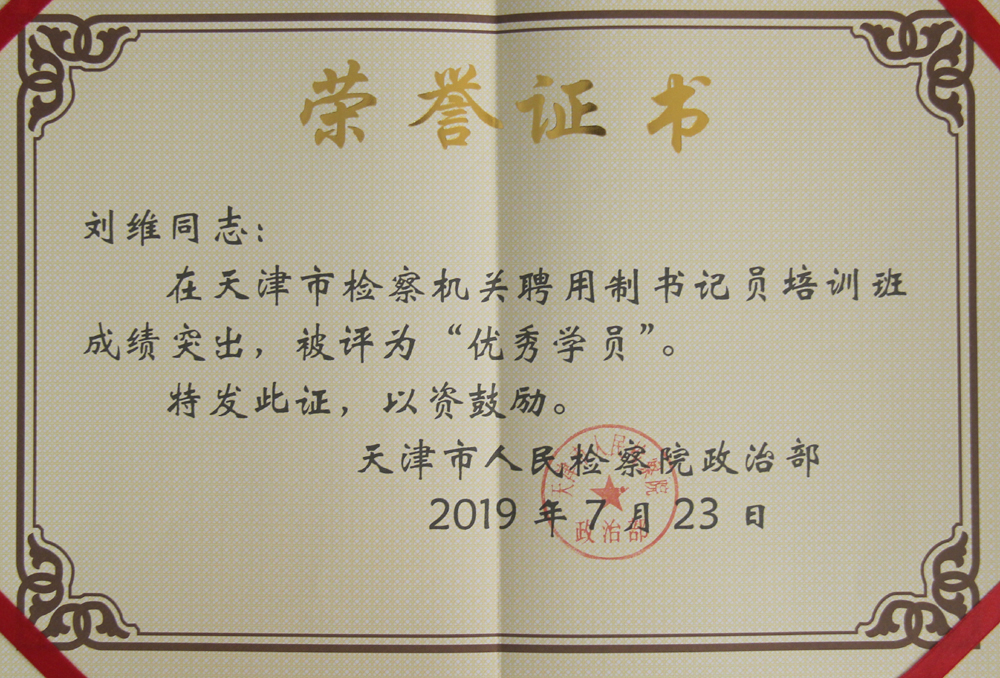 荣誉证书
刘维同志：
在天津市检察机关聘用制书记员培训班
成绩突出，被评为“优秀学员”。
特发此证，以资鼓励。
天津市人民检察院政治部
2019年7月23日
天津市人民检察院
政治部